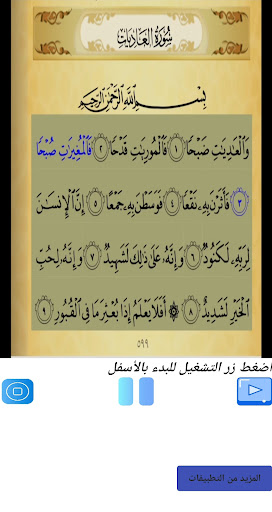 سُورَةُ العَادِيَات
بِسْمِ ٱللَّهِ ٱلرَّحْمَٰنِ ٱلرَّحِيمِ
وَٱلْعَٰدِيَٰتِ ضَبْحًا ١ فَٱلْمُورِيَٰتِ قَدْحًا ٢ فَٱلْمُغِيرَٰتِ صُبْحًا
٣ فَأَثَرْنَ بِهِۦ نَقْعًا ٤ فَوَسَطْنَ بِهِۦ جَمْعًا ٥ إِنَّ ٱلْإِنسَٰنَ
لِرَبِّهِۦ لَكَنُودٌ ٦ وَإِنَّهُۥ عَلَىٰ ذَٰلِكَ لَشَهِيدٌ ٧ وَإِنَّهُۥ لِحُبِّ
ٱلْخَيْرِ لَشَدِيدٌ ٨ ۞ أَفَلَا يَعْلَمُ إِذَا بُعْثِرَ مَا فِى ٱلْقُبُورِ ٩
٥٩٩
اضغط زر التشغيل للبدء بالأسفل
المزيد من التطبيقات